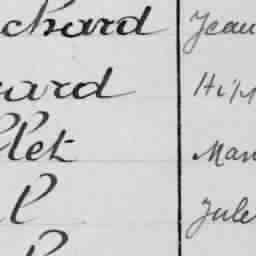 chard Jean
ard Hipp
llet Mar
l Jule